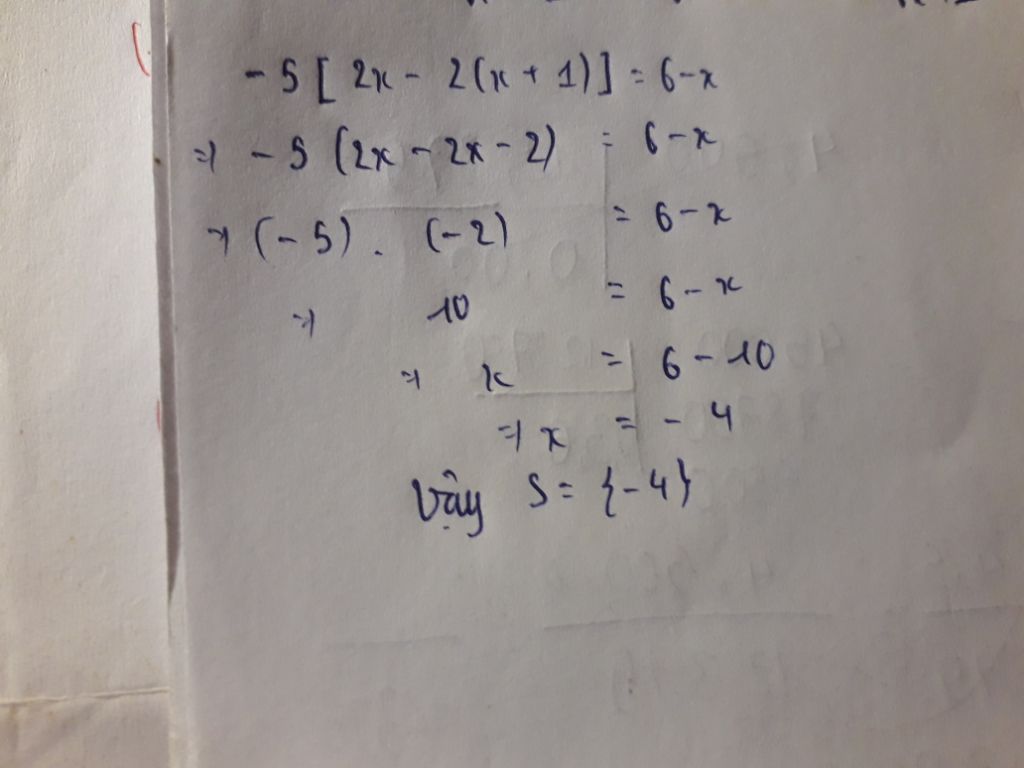 - 5 [ 2x - 2(x + 1)] = 6 - x
=> - 5 (2x - 2x - 2) = 6 - x
=> (- 5) . (- 2) = 6 - x
=> 10 = 6 - x
=> x = 6 - 10
=> x = - 4
Vậy S = {- 4}